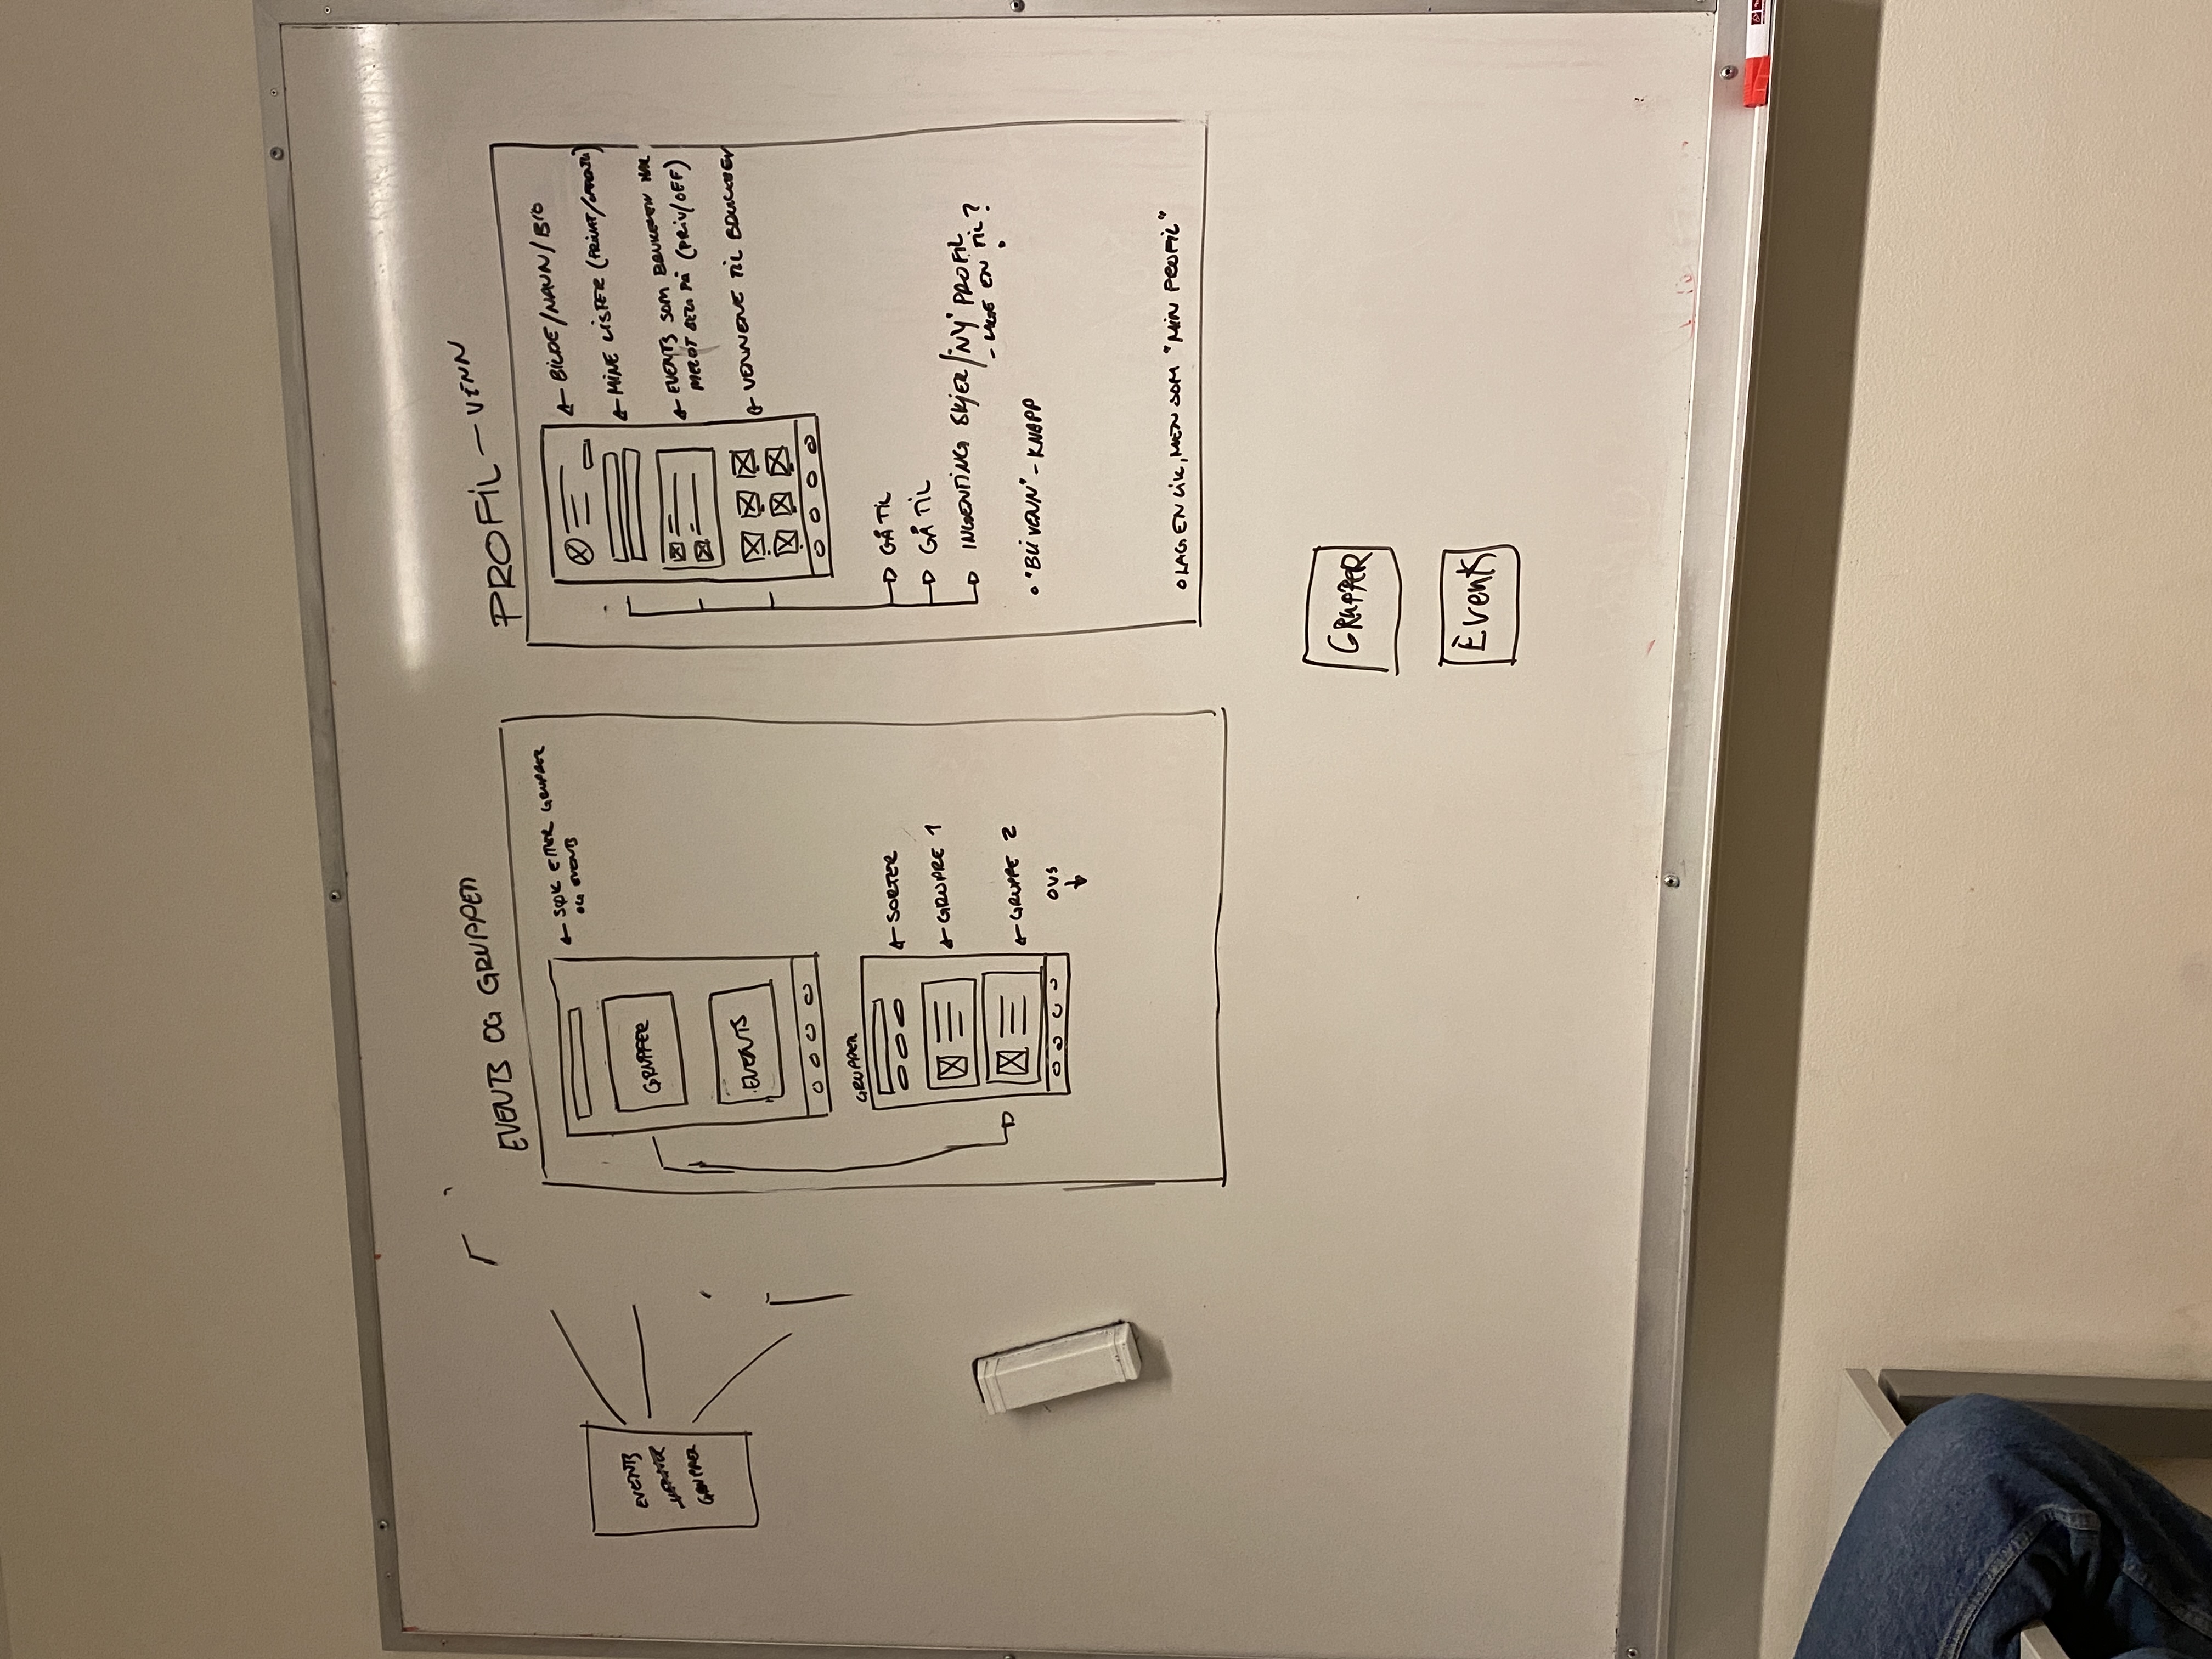 EVENTS
VENNER
GRUPPER
EVENTS OG GRUPPER
SØK ETTER GRUPPER
OG EVENTS
GRUPPER
EVENTS
GRUPPER
SORTER
GRUPPE 1
GRUPPE 2
OVS
PROFIL - VENN
BILDE/NAVN/BIO
MINE LISTER (PRIVAT/OFFENTLIG)
EVENTS SOM BRUKEREN HAR
MELDT SEG PÅ (PRIV/OFF)
VENNENE TIL BRUKEREN
GÅ TIL
GÅ TIL
INGENTING SKJER/"NY" PROFIL
- LAGE EN TIL?
"BLI VENN" - KNAPP
LAG EN LIK, MEN SOM "MIN PROFIL"
GRUPPER
Events